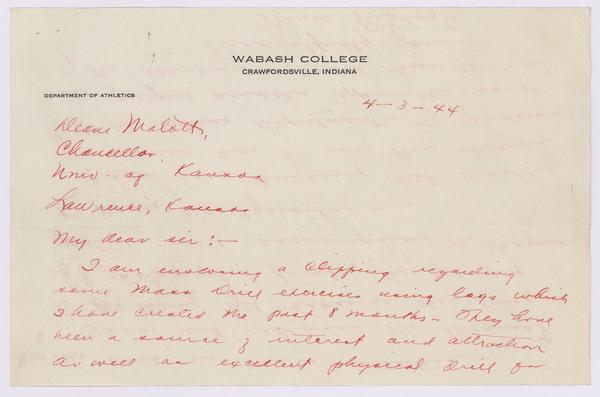 WABASH COLLEGE
CRAWFORDSVILLE, INDIANA
DEPARTMENT OF ATHLETICS
4-3-44
Deane Malott,
Chancellor,
Univ. of Kansas
Lawrence, Kansas
My dear sir:-
I am enclosing a clipping regarding
some Mass Drill exercises using logs which
I have created the past 8 months - They have
been a source of interest and attraction
as well as excellent physical drill for